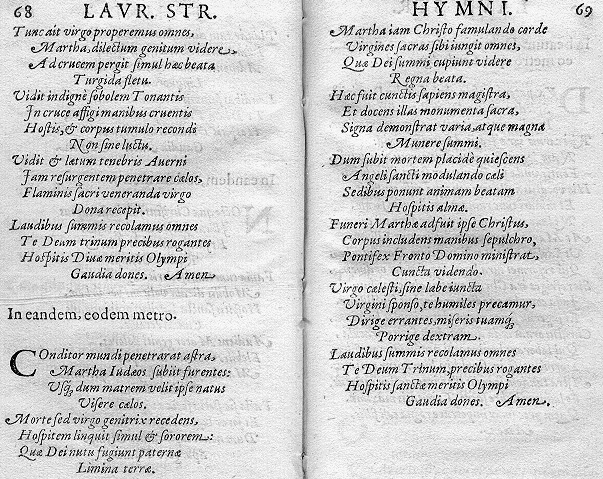 68 LAVR. STR.
Tunc ait virgo properemus omnes,
Martha, dilectum genitum videre,
Ad crucem pergit simul hæc beata
Turgida fletu.
Vidit indignè sobolem Tonantis
In cruce affigi manibus cruentis
Hostis, & corpus tumulo recondi
Non sine luctu.
Vidit & latum tenebris Averni
Jam resurgentem penetrare cælos,
Flaminis sacri veneranda virgo
Dona recepit.
Laudibus summis recolamus omnes
Te Deum trinum precibus rogantes
Hospitis Divæ meritis Olympi
Gaudia dones. Amen
In eandem, eodem metro.
COnditor mundi penetrarat astra,
Martha Iudæos subiit furentes:
Usq; dum matrem velit ipse natus
Visere cælos.
Morte sed virgo genitrix recedens,
Hospitem linquit simul & sororem:
Quæ Dei nutu fugiunt paternæ
Limina terræ.
HYMNI. 69
Martha iam Christo famulando corde
Virgines sacras sibi iungit omnes,
Quæ Dei summi cupiunt videre
Regna beata.
Hæc fuit cunctis sapiens magistra,
Et docens illas monumenta sacra,
Signa demonstrat varia, atque magna
Munere summi.
Dum subit mortem placidè quiescens
Angeli sancti modulando cæli
Sedibus ponunt animam beatam
Hospitis almæ.
Funeri Marthæ adfuit ipse Christus,
Corpus includens manibus sepulchro,
Pontifex Fronto Domino ministrat,
Cuncta videndo.
Virgo cælesti, sine labe iuncta
Virgini sponso, te humiles precamur,
Dirige errantes, miseris tuamq;
Porrige dextram.
Laudibus summis recolamus omnes
Te Deum Trinum, precibus rogantes
Hospitis sanctæ meritis Olympi
Gaudia dones. Amen.